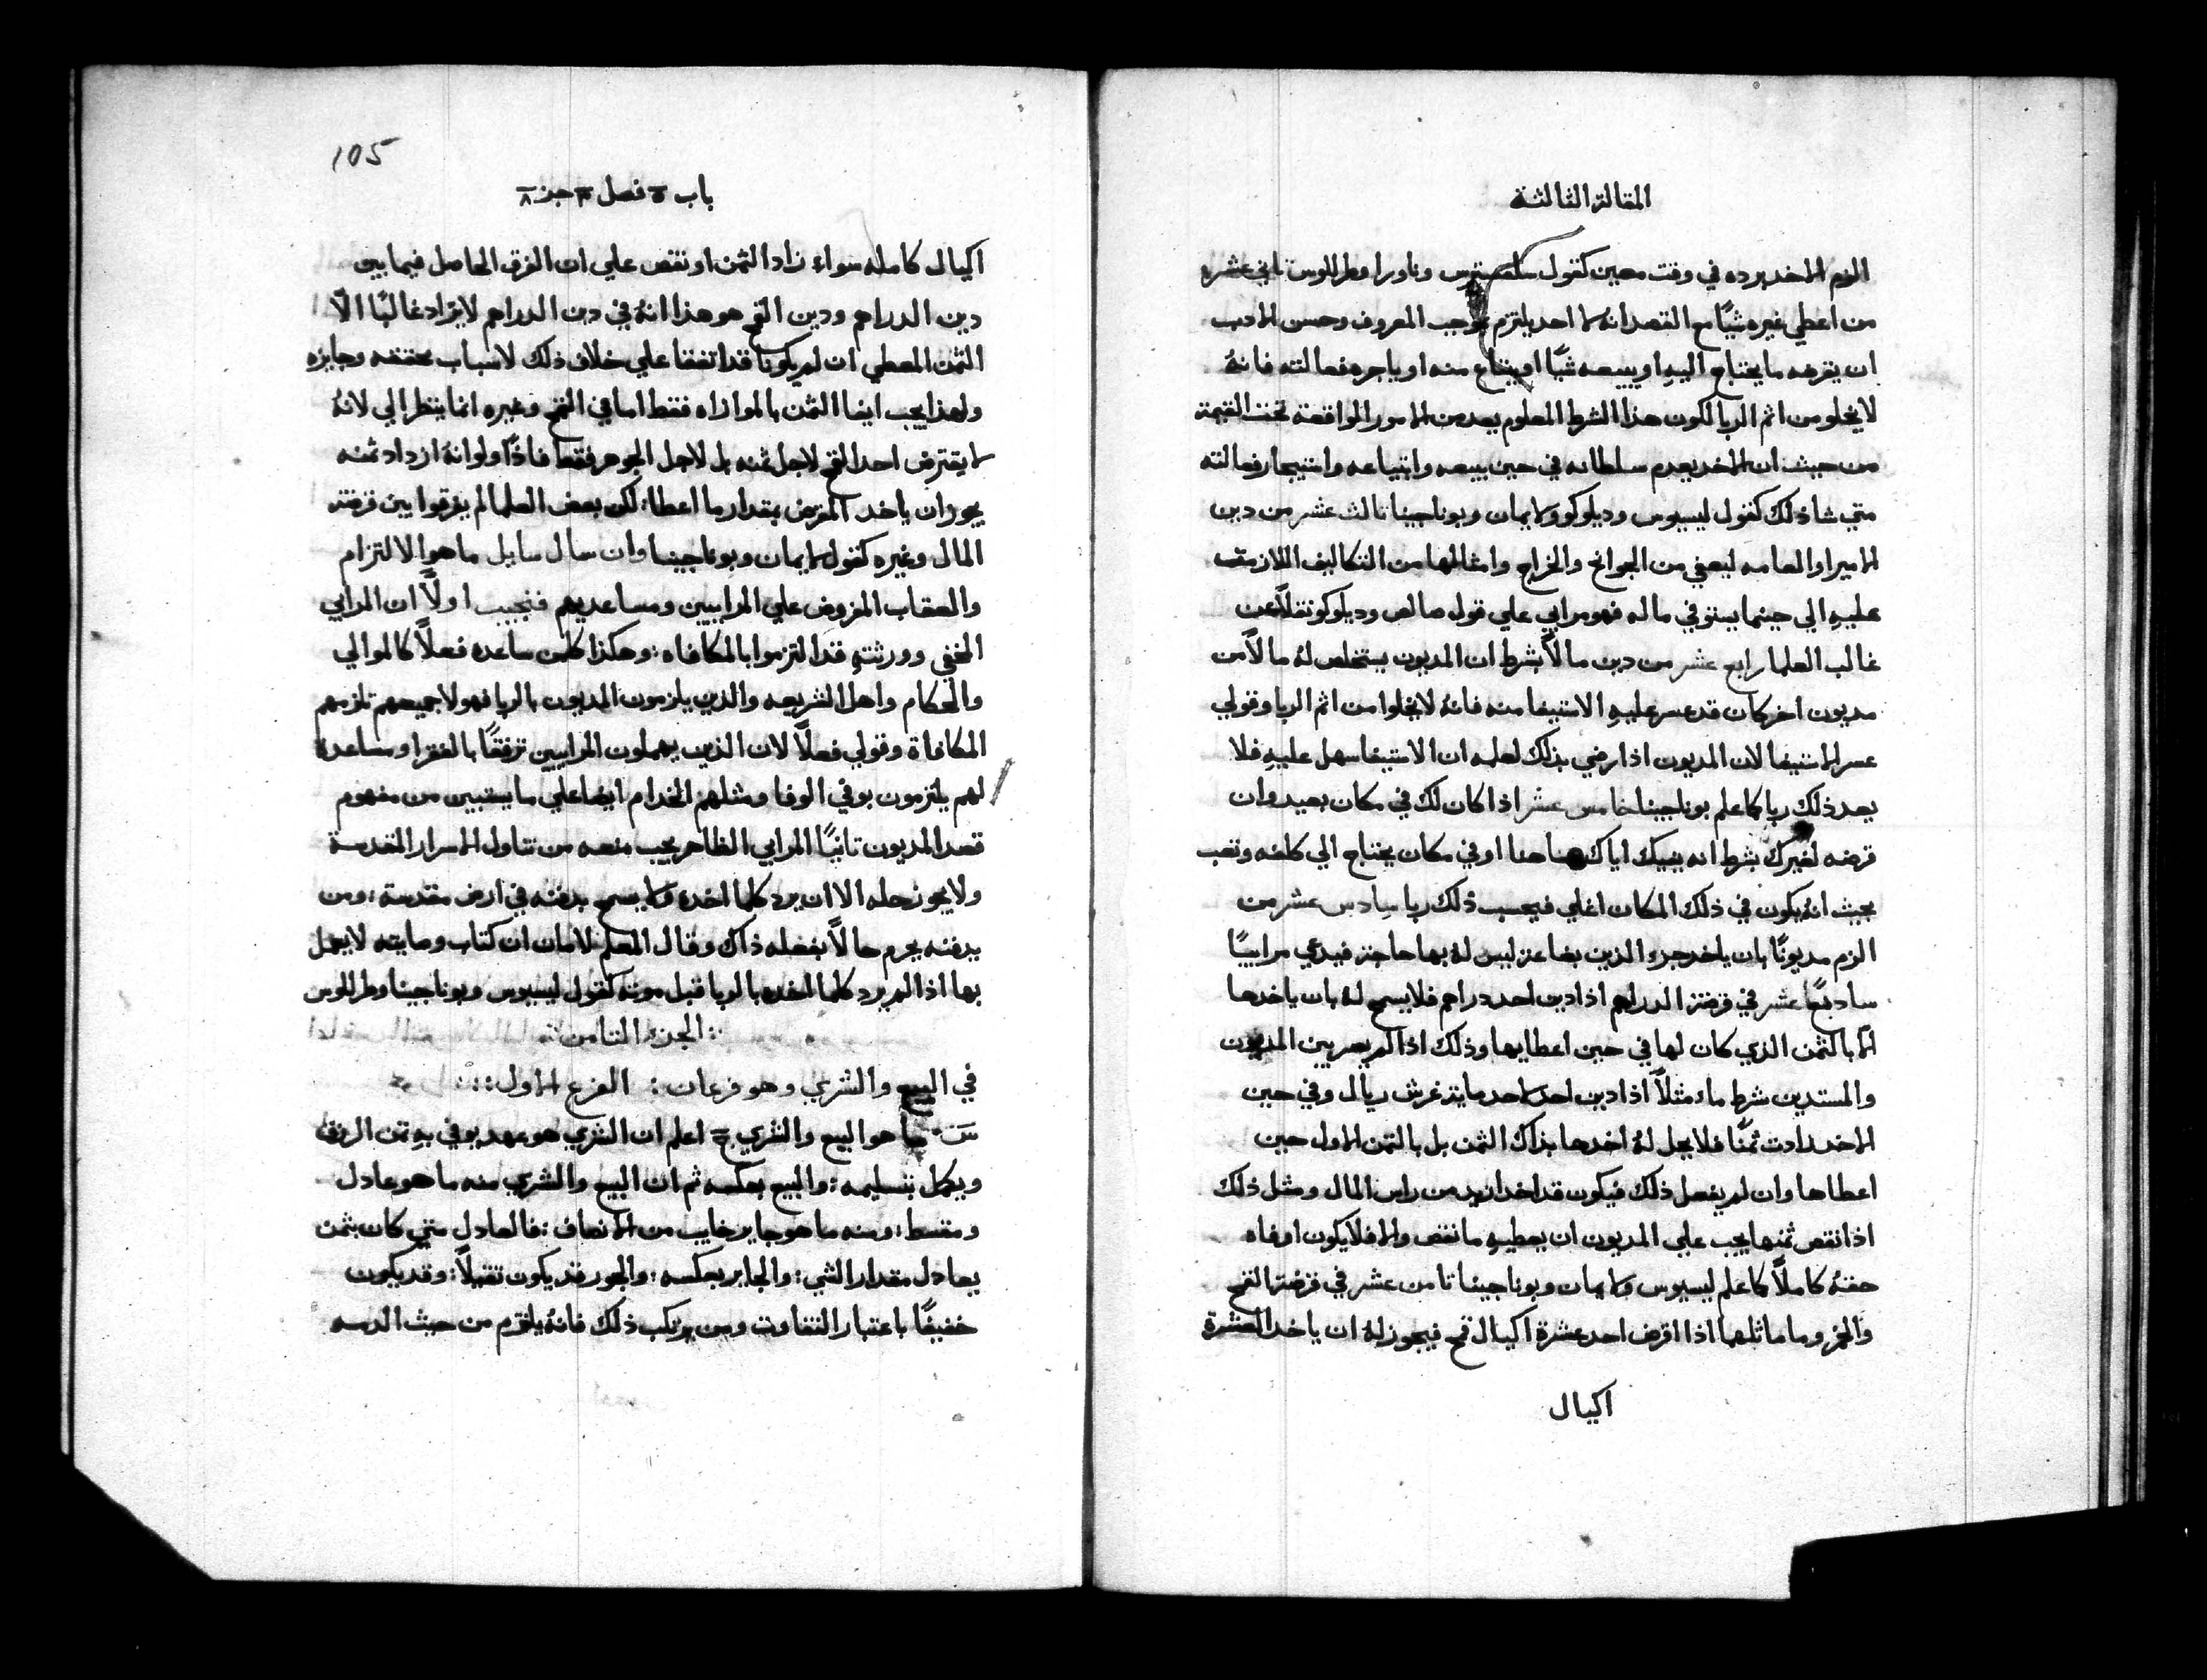 المقالة الثالثة
الزم الاخد برده في وقت معين كقول وناورا وطرللوس ثاني عشره
من اعطي غيره شيًا مع القصد انه لا احد يلتزم بموجب المعروف وحسن الادب
ان يقرضه ما يحتاج اليهِ او يبيعه شيًا او يبتاع منه او ياجره فعالته فانهُ
لا يخلو من اثم الربا لكون هذا الشرط المعلوم يعد من الامور الواقعة تحت القيمة
من حيث ان الاخد يعدم سلطانه في حين بيعه وابتياعه واستيجار فعالته
متي شا ذلك كقول ليسيوس وديلوكو ولايمان وبوناجينا ثالث عشر من دين
الامير او العامه ليعفي من الجوانح والخراج وامثالها من التكاليف اللازمة
عليهِ الي حينما يستوفي ماله فهو مرابي علي قول صالص وديلوكو نقلاً عن
غالب العلما رابع عشر من دين مالاً بشرط ان المديون يستخلص لهُ مالاً من
مديون اخر كان قد عسر عليهِ الاستيفا منه فانهُ لا يخلوا من اثم الربا وقولي
عسر الاستيفا لان المديون اذا رضي بذلك لعلمه ان الاستيفا سهل عليهِ فلا
يعد ذلك ربا كما علم بوناجينا خامس عشر اذا كان لك في مكان بعيد وان
قرضه لغيرك بشرط انه يفيك اياك هنا او في مكان يحتاج الي كلفه وتعب
بحيث انهُ يكون في ذلك المكان اغلي فيحسب ذلك ربا سادس عشر من
الزم مديونًا بان ياخد جزء الدين بضاعة ليس لهُ بها حاجة فيدعي مرابيًا
سابعًا عشر في قرضة الدراهم اذا دين احد دراهم فلا يسمح لهُ بان ياخدها
الا بالثمن الذي كان لها في حين اعطايها وذلك اذا لم يصر بين المديون
والمستدين شرط ما، مثلاً اذا دين احد لاحد ماية غرش ريال وفي حين
الاخد زادت ثمنًا فلا يحل لهُ اخدها بذاك الثمن بل بالثمن الاول حين
اعطاها وان لم يفعل ذلك فيكون قد اخد ازيد من راس المال ومثل ذلك
اذا نقص ثمنها يجب علي المديون ان يعطيهِ ما نقص والا فلا يكون اوفاه
حقهُ كاملاً كما علم ليسيوس ولايمان وبوناجينا ثامن عشر في قرضة القمح
والخمر وما ماثلها اذا اقرض احد عشرة اكيال قمح فيجوز لهُ ان ياخد العشرة
اكيال
105
باب ٥ فصل ٣ جز ٨
اكيال كامله سواء زاد الثمن او نقص علي ان الفرق الحاصل فيما بين
دين الدراهم ودين القمح هو هذا انهُ في دين الدراهم لا يزاد غالبًا الّا
الثمن المعطي ان لم يكونا قد اتفقا علي خلاف ذلك لاسباب محققه وجايزه
ولهذا يجب ايفا الثمن بالموازاه فقط اما في القمح وغيره انما ينظر الي لانهُ
لا يقترض احد القمح لاجل ثمنه بل لاجل الجوهر فقط فاذًا ولو انهُ ازداد ثمنه
يجوز ان ياخد المقرض بمقدار ما اعطا؛ لكن بعض العلما لم يفرقوا بين قرضة
المال وغيره كقول لايمان وبوناجينا وان سال سايل ما هو الالتزام
والعقاب المفروض علي المرابيين ومساعديهم فنجيب اولاً ان المرابي
الخفي وورثتهِ قد التزموا بالمكافاه: وهكذا كلمن ساعده فعلاً كالموالي
والحكام واهل الشريعه والذين يلزمون المديون بالربا فهولا جميعهم تلزمهم
المكافاة وقولي فعلاً لان الذين يهملون المرابيين ترفقًا بالفقرا ومساعدة
لهم يلتزمون بوفي الوفا ومثلهم الخدام ايضا علي ما يستبين من مفهوم
قصد المديون ثانيًا المرابي الظاهر يجب منعه من تناول الاسرار المقدسة
ولا يجوز حله الا ان يرد كلما اخده ولا يسمح بدفنه في ارض مقدسة: ومن
يدفنه يحرم حالاً بفعله ذاك وقال المعلم لامان ان كتاب وصايته لا يعمل
بها اذا لم يرد كلما اخده بالربا قبل موته كقول ليسيوس وبوناجينا وطرللوس
: الجزء الثامن :
في البيع والشري وهو فرعان: الفرع الاول:
س ما هو البيع والشري ج اعلم ان الشري هو عهد يوفي بهِ ثمن الرزق
ويكمل بتسليمه: والبيع بعكسه ثم ان البيع والشري منه ما هو عادل
ومقسط: ومنه ما هو جاير خايب من الانصاف: فالعادل متي كان بثمن
يعادل مقدار الشي: والجاير بعكسه: والجور قد يكون ثقيلاً: وقد يكون
خفيفًا باعتبار التفاوت ومن يرتكب ذلك فانهُ يلتزم من حيث الذمه